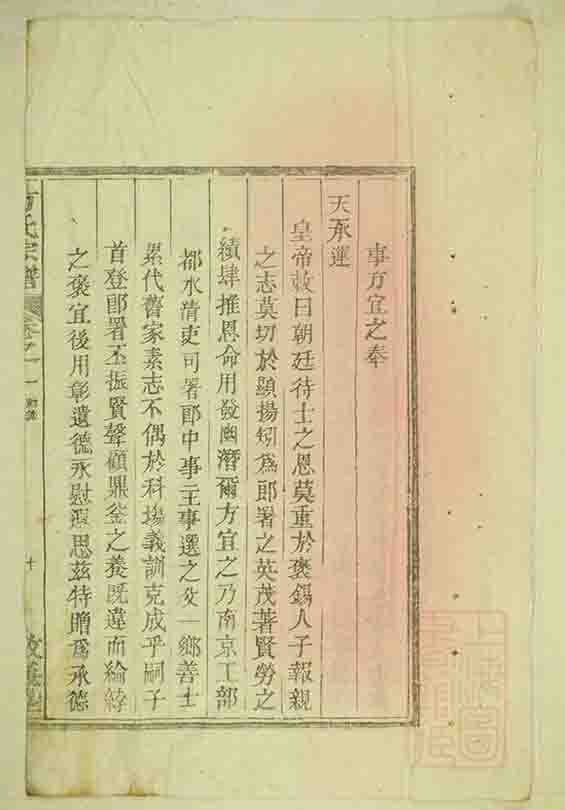 事方宜之奉
天承運
皇帝敕曰朝廷待士之恩莫重於褒錫人子報親
之志莫切於顯揚矧為郎署之英茂著賢勞之
績肆推恩命用發幽潛爾方宜之乃南京工部
都水清吏司署郎中事主事選之父一鄉善士
累代舊家素志不偶於科場義訓克成乎嗣子
首登郎署丕振賢聲顧鼎釜之養既違而綸綍
之褒宜後用彰遺德永慰遐思茲特贈為承德
方氏宗譜
卷之一
十